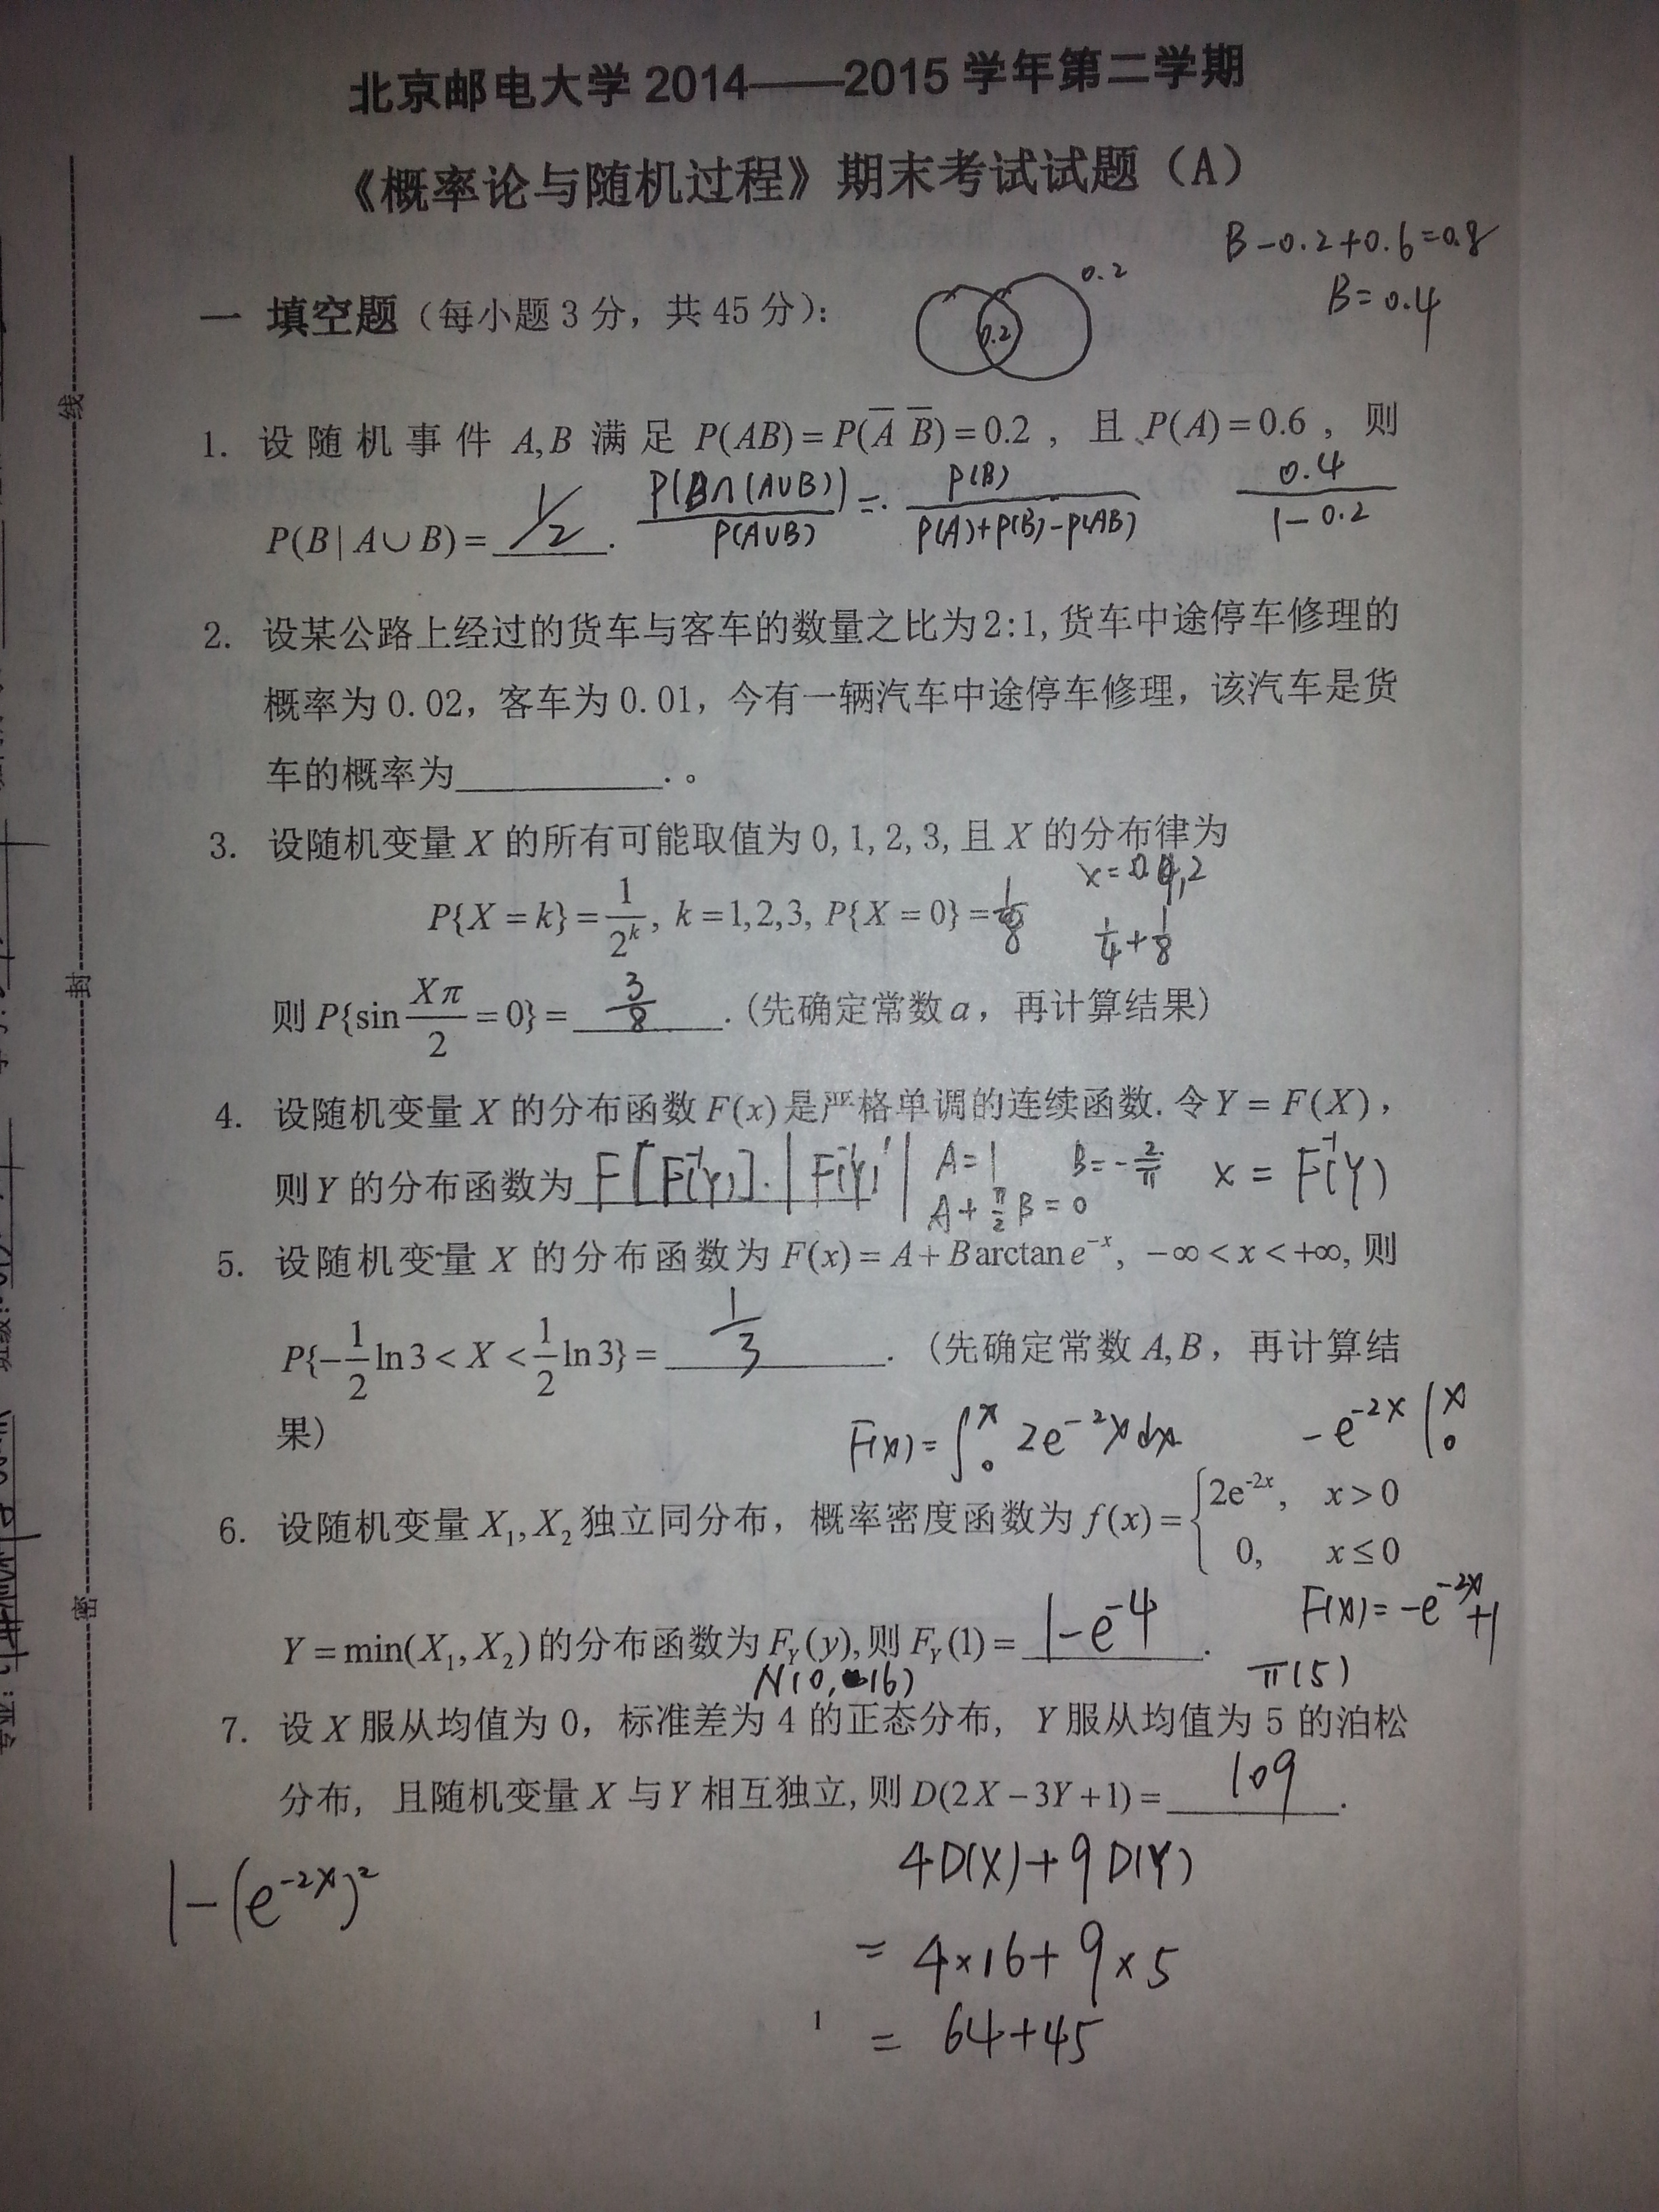 北京邮电大学 2014——2015 学年第二学期
《概率论与随机过程》期末考试试题（A）
B-0.2+0.6=0.8
B=0.4
0.2
0.2
一 填空题（每小题 3 分，共 45 分）：
1. 设随机事件 A,B 满足 P(AB)=P(A̅ B̅)=0.2，且 P(A)=0.6，则
P(B|A∪B)= 1/2 . P(B∩(A∪B))/P(A∪B) = P(B)/(P(A)+P(B)-P(AB)) 0.4/(1-0.2)
2. 设某公路上经过的货车与客车的数量之比为 2:1, 货车中途停车修理的
概率为 0.02，客车为 0.01，今有一辆汽车中途停车修理，该汽车是货
车的概率为__________.。
3. 设随机变量 X 的所有可能取值为 0, 1, 2, 3, 且 X 的分布律为
P{X=k}=1/2^k, k=1,2,3, P{X=0}=1/8
1/4+1/8
则 P{sin Xπ/2 =0}= 3/8 .(先确定常数 a，再计算结果)
4. 设随机变量 X 的分布函数 F(x) 是严格单调的连续函数. 令 Y=F(X)，
则 Y 的分布函数为 F[F⁻¹(Y)]·|F⁻¹(Y)'| A=1 B=-2/π x=F⁻¹(Y)
A+π/2 B=0
5. 设随机变量 X 的分布函数为 F(x)=A+B arctan e^{-x}, -∞<x<+∞, 则
P{-1/2 ln3<X<1/2 ln3}= 1/3 . (先确定常数 A,B，再计算结
果)
F(x)=∫₀^x 2e^{-2x}dx -e^{-2x}|₀^x
6. 设随机变量 X₁,X₂ 独立同分布，概率密度函数为 f(x)={2e^{-2x}, x>0
0, x≤0
F(x)=-e^{-2x}+1
Y=min(X₁,X₂) 的分布函数为 F_Y(y), 则 F_Y(1)= 1-e^{-4} .
N(0, 16) π(5)
7. 设 X 服从均值为 0，标准差为 4 的正态分布, Y 服从均值为 5 的泊松
分布, 且随机变量 X 与 Y 相互独立, 则 D(2X-3Y+1)= 109 .
4D(X)+9D(Y)
1-(e^{-2x})²
=4×16+9×5
1
=64+45
线
封
密